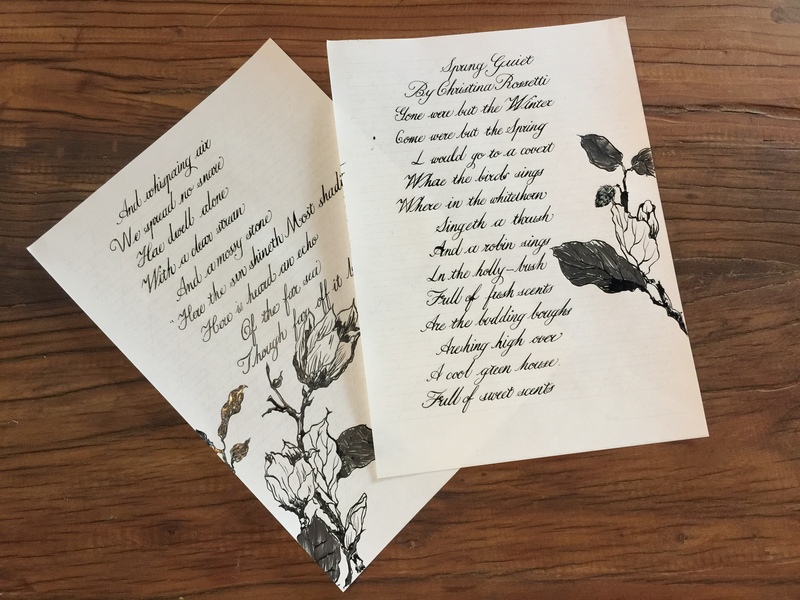 Spring Quiet
By Christina Rossetti
Gone were but the Winter
Come were but the Spring
I would go to a covert
Whare the birds sings
Where in the whitethorn
Singeth a thrush
And a robin sings
In the holly-bush
Full of fresh scents
Are the budding boughs
Arching high over
A cool green house
Full of sweet scents
And whispering air
We spread no snare
Hae dwell alone
With a clear stream
And a mossy stone
"Hae the sun shineth Most shadi
Here is heard an echo
Of the far sea
Though far off it b